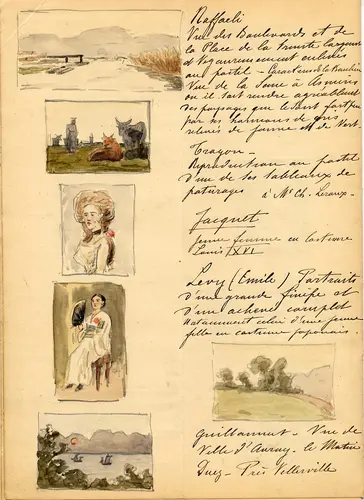 Raffaeli
Vue des Boulevards et de
la Place de la Trinité largement
et vigoureusement enlevées
au pastel – Caractères de la Banlieue
Vue de la Seine à Asnières
où il sait rendre agréablement
des paysages que le sont fort peu
par ses harmonies de gris
relevés de jaune et de vert.
Troyon –
Reproduction au pastel
d'une de ses tableaux de
pâturages
à Mr Ch. Leroux –
Jacquet
jeune femme en costume
Louis XVI
Levy (Emile) Portraits
d'une grande finesse et
d'un achevé complet
notamment celui d'une jeune
fille en costume japonais.
Guillaumet – Vue de
Ville d'Avray – le Matin
Duez – Près Villerville